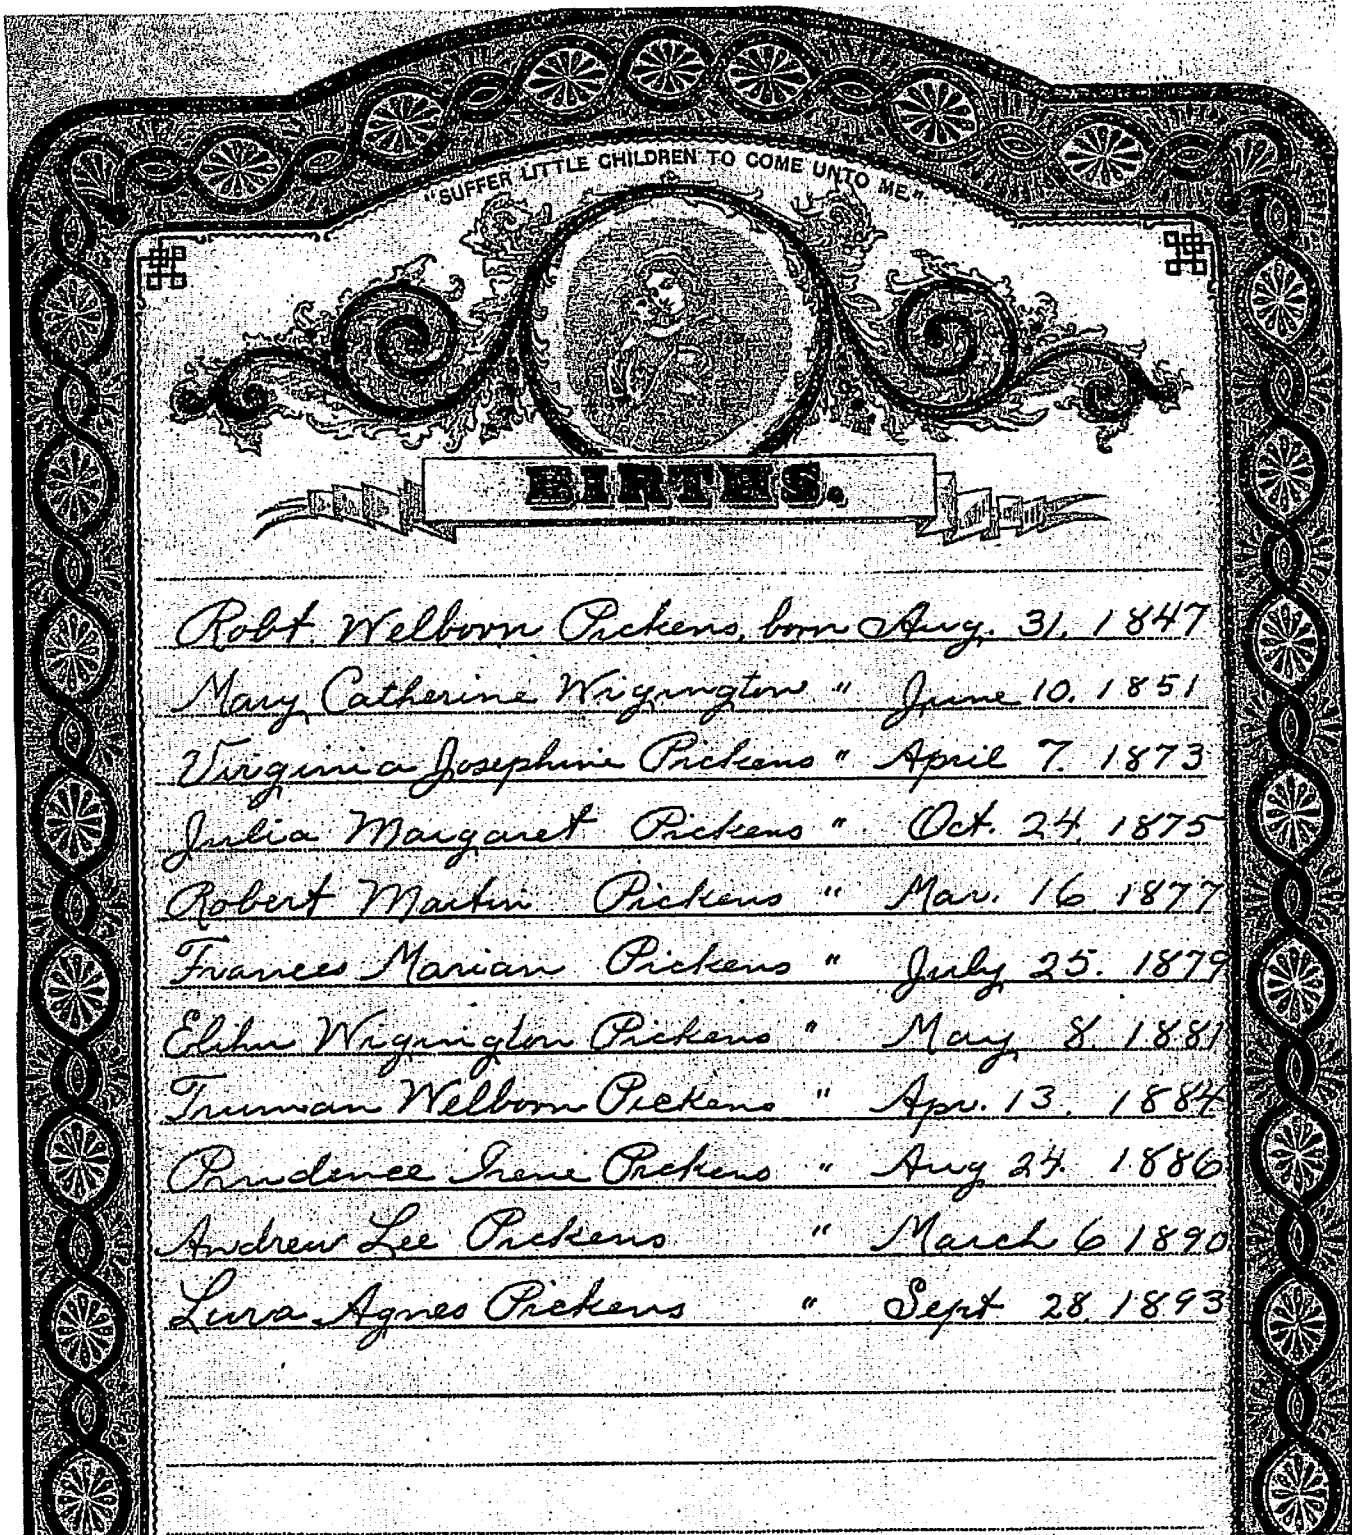 "SUFFER LITTLE CHILDREN TO COME UNTO ME."
BIRTHS.
Robt. Welborn Pickens, born Aug. 31. 1847
Mary Catherine Wigington " June 10. 1851
Virginia Josephine Pickens " April 7. 1873
Julia Margaret Pickens " Oct. 24. 1875
Robert Martin Pickens " Mar. 16. 1877
Frances Marian Pickens " July 25. 1879
Elihu Wigington Pickens " May 8. 1881
Truman Welborn Pickens " Apr. 13. 1884
Prudence Irene Pickens " Aug 24. 1886
Andrew Lee Pickens " March 6 1890
Lura Agnes Pickens " Sept 28. 1893